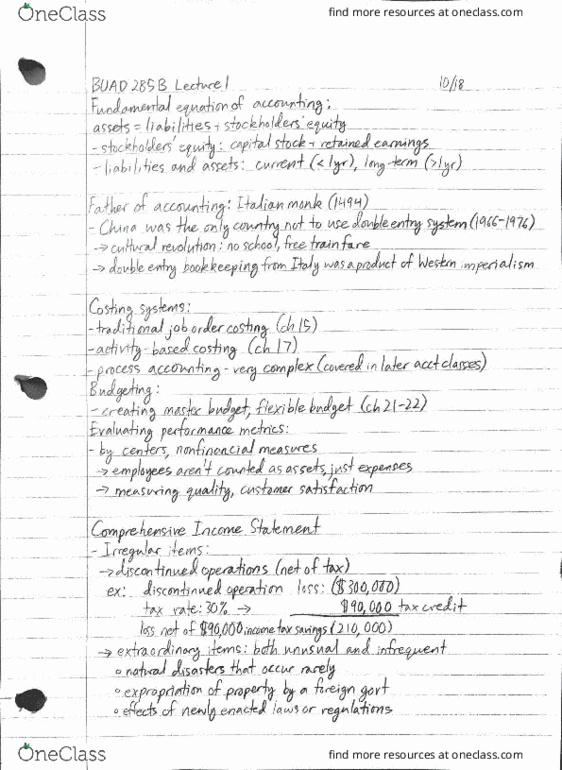 OneClass
find more resources at oneclass.com
BUAD 285B Lecture 1 10/18
Fundamental equation of accounting:
assets = liabilities + stockholders' equity
- stockholders equity: capital stock + retained earnings
- liabilities and assets: current (<1yr), long-term (>1yr)
Father of accounting: Italian monk (1494)
- China was the only country not to use double entry system (1966-1976)
→ cultural revolution: no school, free train fare
→ double entry bookkeeping from Italy was a product of Western imperialism
Costing systems:
- traditional job order costing (ch 15)
- activity-based costing (ch 17)
- process accounting - very complex (covered in later acct classes)
Budgeting:
- creating master budget, flexible budget (ch 21-22)
Evaluating performance metrics:
- by centers, nonfinancial measures
→ employees aren't counted as assets, just expenses
→ measuring quality, customer satisfaction
Comprehensive Income Statement
- Irregular items:
→ discontinued operations (net of tax)
ex: discontinued operation loss: ($300,000)
tax rate: 30% → $90,000 tax credit
loss net of $90,000 income tax savings (210,000)
→ extraordinary items: both unusual and infrequent
o natural disasters that occur rarely
o expropriation of property by a foreign govt
o effects of newly enacted laws or regulations
OneClass
find more resources at oneclass.com